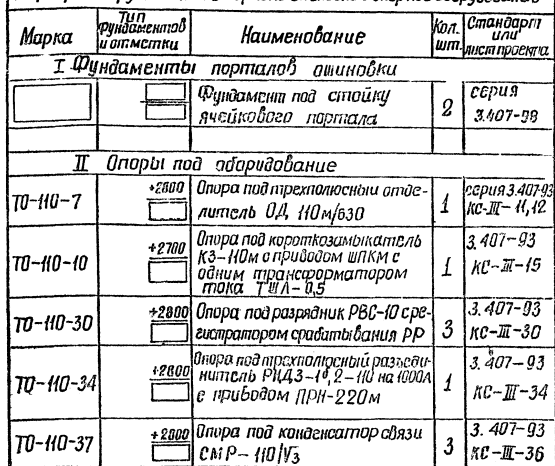 Марка
Тип фундаментов и отметки
Наименование
Кол. шт.
Стандарт или лист проекта
I Фундаменты порталов ошиновки
Фундамент под стойку
ячейкового портала
2
серия
3.407-98
II Опоры под оборудование
ТО-110-7
+2800
Опора под трехполюсный отде-
литель ОД 110м/630
1
серия 3.407-93
КС-III-11,12
ТО-110-10
+2700
Опора под короткозамыкатель
КЗ-110м с приводом шпкм с
одним трансформатором
тока ТШЛ-0,5
1
3.407-93
КС-III-15
ТО-110-30
+2800
Опора под разрядник РВС-10 с ре-
гистратором срабатывания РР
3
3.407-93
КС-III-30
ТО-110-34
+2800
Опора под трехполюсный разъеди-
нитель РНДЗ-1б,2-110 на 1000А
с приводом ПРН-220м
1
3.407-93
КС-III-34
ТО-110-37
+2800
Опора под конденсатор связи
СМР-110/У3
3
3.407-93
КС-III-36